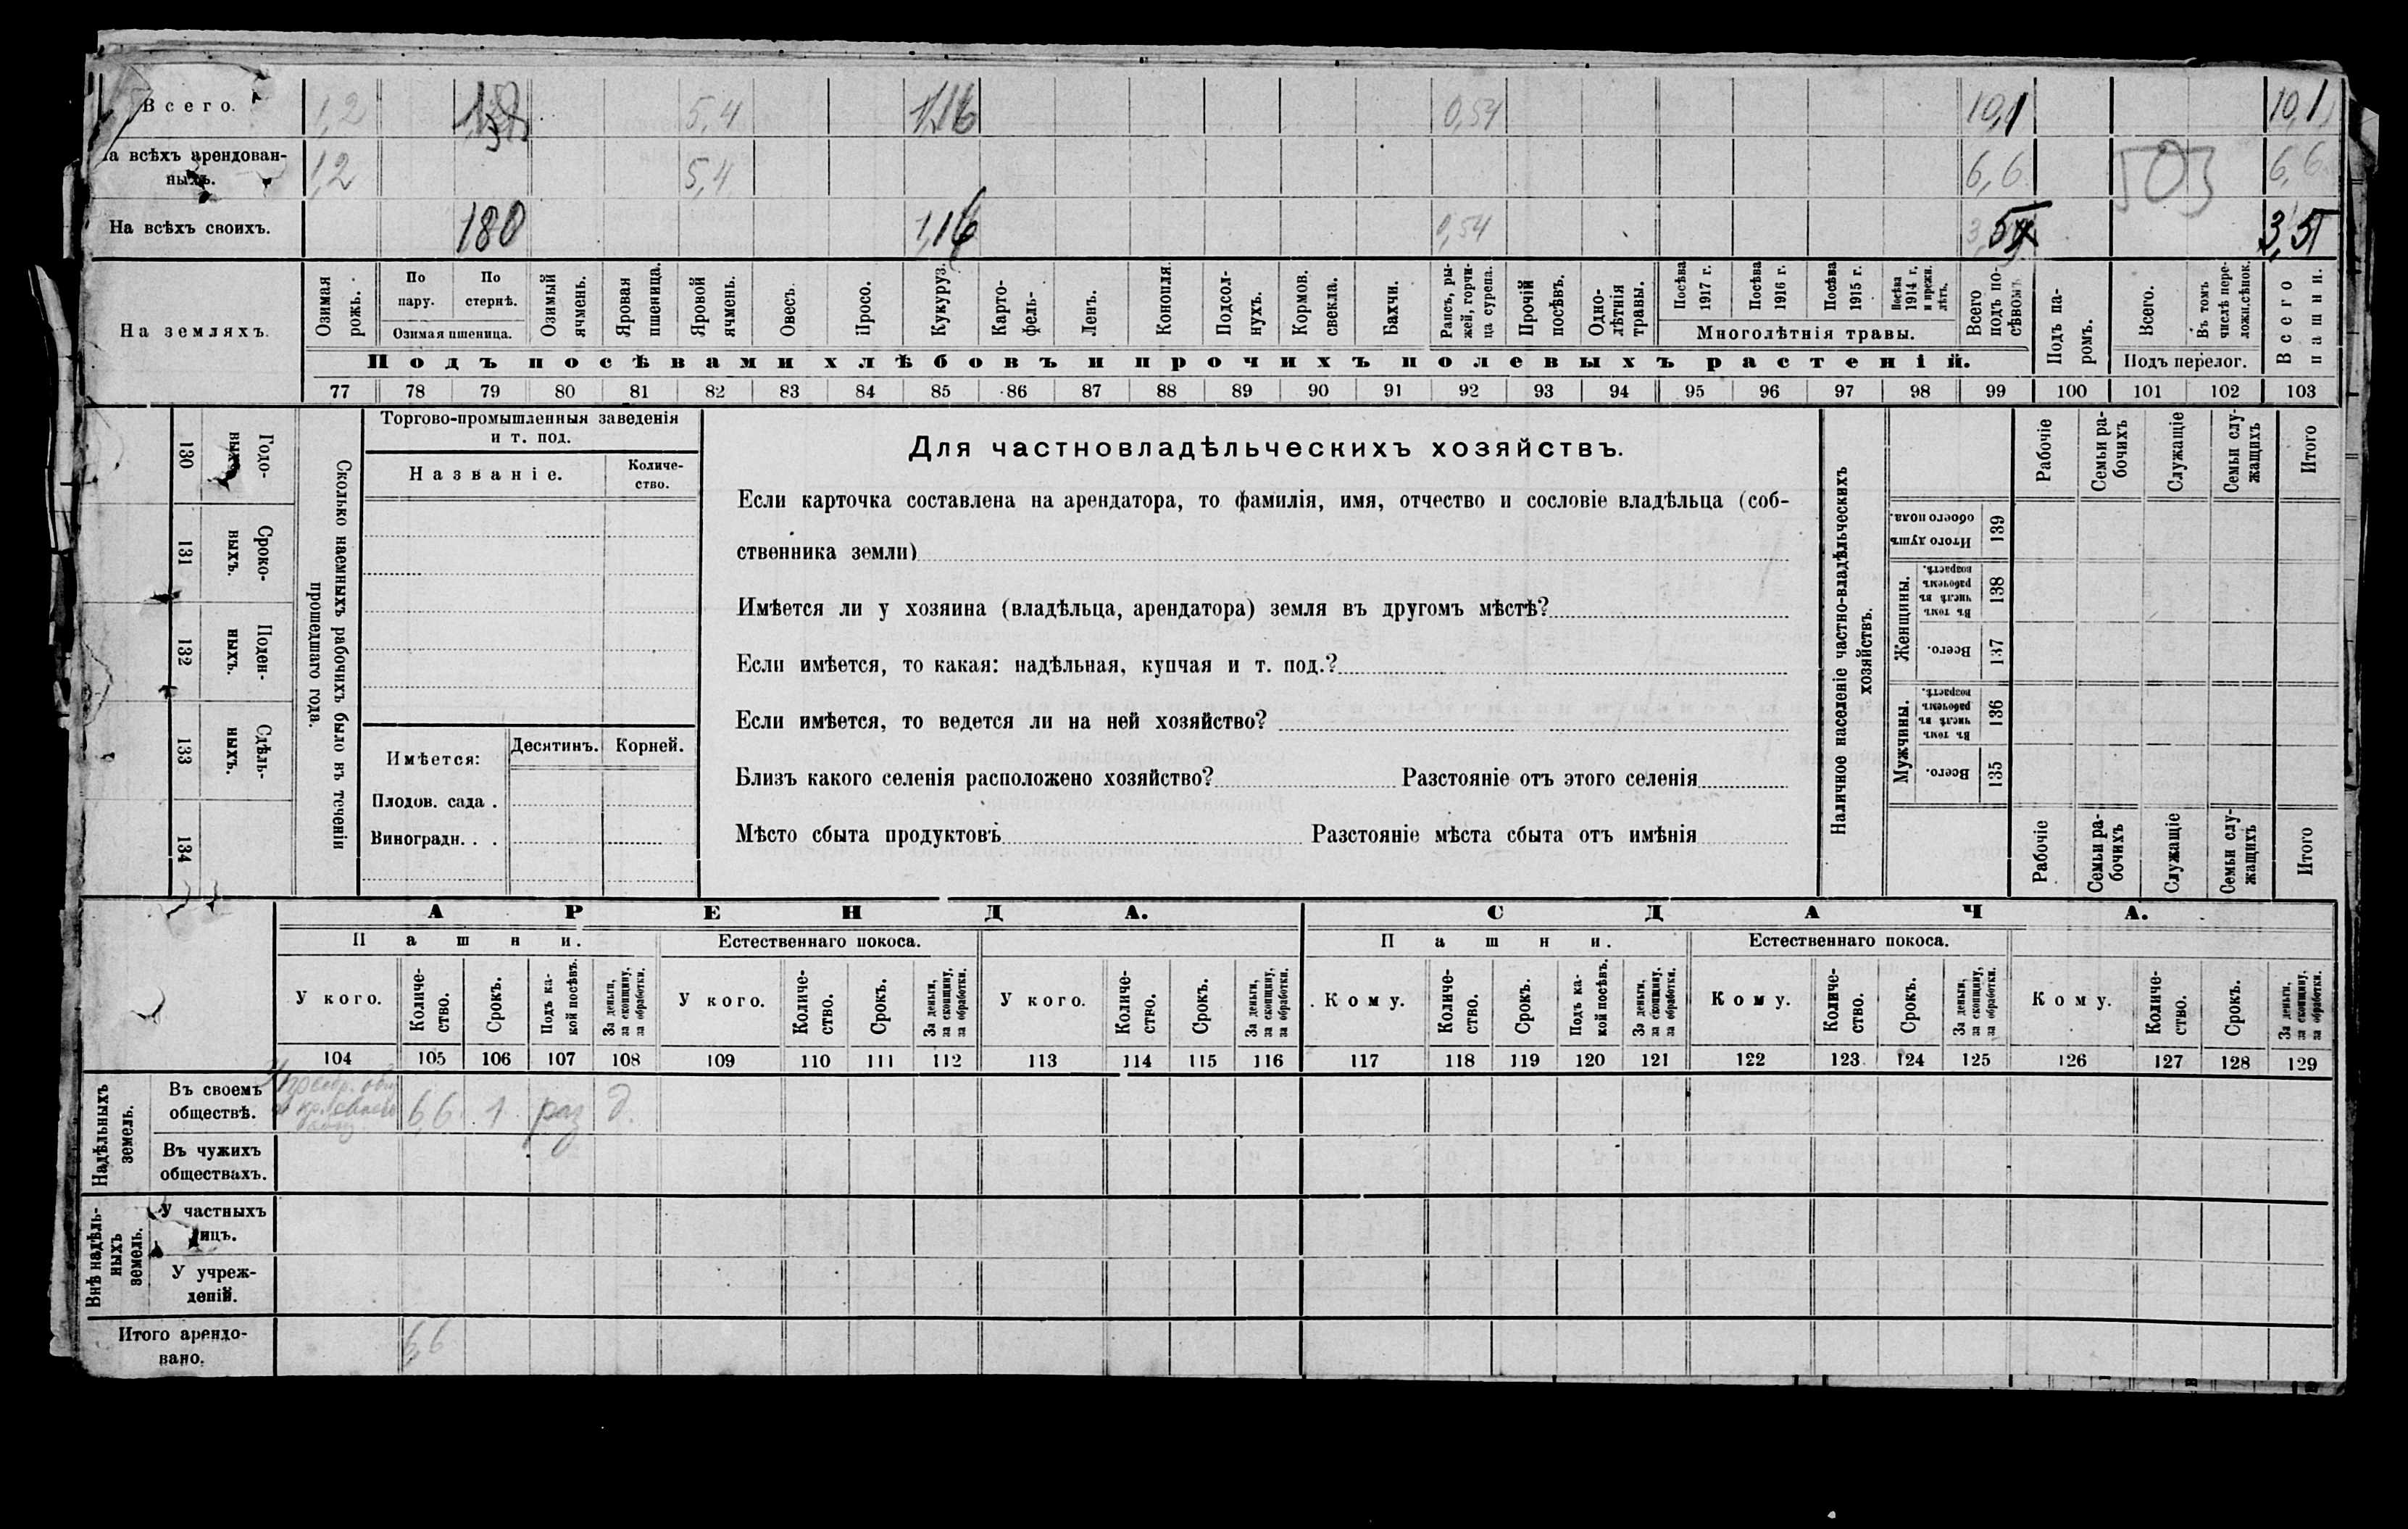 Всего. 1,2 5,4 1,16 0,54 10,1 10,1
На всѣхъ арендованныхъ. 1,2 5,4 6,6 503 6,6
На всѣхъ своихъ. 180 1,16 0,54 3,5
На земляхъ.
Озимая рожь.
По пару.
По стернѣ.
Озимая пшеница.
Озимый ячмень.
Яровая пшеница.
Яровой ячмень.
Овесъ.
Просо.
Кукуруз.
Картофель-
Ленъ.
Конопля.
Подсолнухъ.
Кормов. свекла.
Бахчи.
Рапсъ, рыжей, горчица сурепа.
Прочій посѣвъ.
Однолѣтнія травы.
Посѣва 1917 г.
Посѣва 1916 г.
Посѣва 1915 г.
Посѣва 1914 г, и прежн. лѣтъ.
Многолѣтнія травы.
Всего подъ посѣвомъ
Подъ паромъ.
Всего.
Въ томъ числѣ переложн.сѣнок.
Подъ перелог.
Всего пашни.
Подъ посѣвами хлѣбовъ и прочихъ полевыхъ растеній.
77 78 79 80 81 82 83 84 85 86 87 88 89 90 91 92 93 94 95 96 97 98 99 100 101 102 103
130 Годовыхъ.
131 Срочныхъ.
132 Поденныхъ.
133 Сдѣльныхъ.
134
Сколько наемныхъ рабочихъ было въ теченіи
прошедшаго года.
Торгово-промышленныя заведенія
и т. под.
Названіе.
Количество.
Имѣется:
Десятинъ.
Корней.
Плодов. сада .
Виноградн. . .
Для частновладѣльческихъ хозяйствъ.
Если карточка составлена на арендатора, то фамилія, имя, отчество и сословіе владѣльца (соб-
ственника земли)
Имѣется ли у хозяина (владѣльца, арендатора) земля въ другомъ мѣстѣ?
Если имѣется, то какая: надѣльная, купчая и т. под.?
Если имѣется, то ведется ли на ней хозяйство?
Близъ какого селенія расположено хозяйство? Разстояніе отъ этого селенія
Мѣсто сбыта продуктовъ Разстояніе мѣста сбыта отъ имѣнія
Наличное населеніе частно-владѣльческихъ
хозяйствъ.
Рабочіе
Семьи рабочихъ
Служащіе
Семьи служащихъ
Итого
Итого душъ обоего пола. 139
Женщины.
Въ томъ числѣ въ рабочемъ возрастѣ. 138
Всего. 137
Мужчины.
Въ томъ числѣ въ рабочемъ возрастѣ. 136
Всего. 135
Рабочіе
Семьи рабочихъ
Служащіе
Семьи служащихъ
Итого
АРЕНДА. СДАЧА.
Пашни. Естественнаго покоса. Пашни. Естественнаго покоса.
У кого. Количество. Срокъ. Подъ какой посѣвъ. За деньги, за скопщину, за обработки.
У кого. Количество. Срокъ. За деньги, за скопщину, за обработки.
У кого. Количество. Срокъ. За деньги, за скопщину, за обработки.
Кому. Количество. Срокъ. Подъ какой посѣвъ. За деньги, за скопщину, за обработки.
Кому. Количество. Срокъ. За деньги, за скопщину, за обработки.
Кому. Количество. Срокъ. За деньги, за скопщину, за обработки.
104 105 106 107 108 109 110 111 112 113 114 115 116 117 118 119 120 121 122 123 124 125 126 127 128 129
Надѣльныхъ земель.
Въ своемъ обществѣ. 6,6 1 раз д.
Въ чужихъ обществахъ.
Внѣ надѣльныхъ земель.
У частныхъ лицъ.
У учрежденій.
Итого арендовано. 6,6